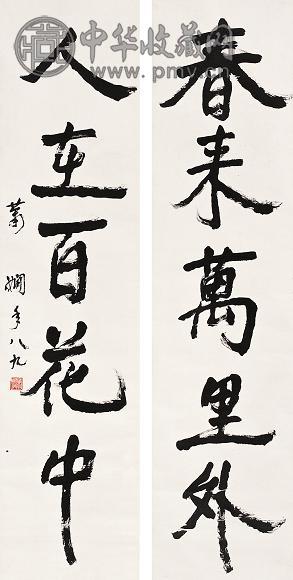 春来萬里外
人在百花中
萧娴年八九
中华收藏网
www.pmv.cn